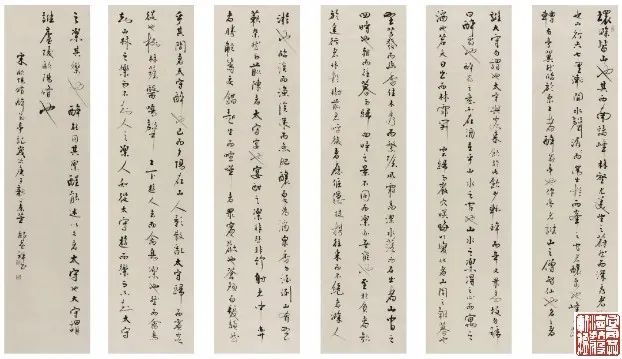 環滁皆山也其西南諸峰林壑尤美望之蔚然而深秀者
也山行六七里漸聞水聲潺潺而瀉出於兩峰之間者釀泉也峰回路
轉有亭翼然臨於泉上者醉翁亭也作亭者誰山之僧智仙也名之者
誰太守自謂也太守與客來飲於此飲少輒醉而年又最高故自號
曰醉翁也醉翁之意不在酒在乎山水之間也山水之樂得之心而寓之
酒也若夫日出而林霏開雲歸而巖穴暝晦明變化者山間之朝暮也
野芳發而幽香佳木秀而繁陰風霜高潔水落而石出者山間之
四時也朝而往暮而歸四時之景不同而樂亦無窮也至於負者歌
於途行者休於樹前者呼後者應傴僂提攜往來而不絕者滁人
遊也臨溪而漁溪深而魚肥釀泉為酒泉香而酒洌山肴野
蔌雜然而前陳者太守宴也宴酣之樂非絲非竹射者中弈
者勝觥籌交錯起坐而喧嘩者眾賓歡也蒼顏白髮頹然
乎其間者太守醉也已而夕陽在山人影散亂太守歸而賓客
從也樹林陰翳鳴聲上下遊人去而禽鳥樂也然而禽鳥
知山林之樂而不知人之樂人知從太守遊而樂而不知太守
之樂其樂也醉能同其樂醒能述以文者太守也太守謂
誰廬陵歐陽修也
宋歐陽修醉翁亭記歲次庚子